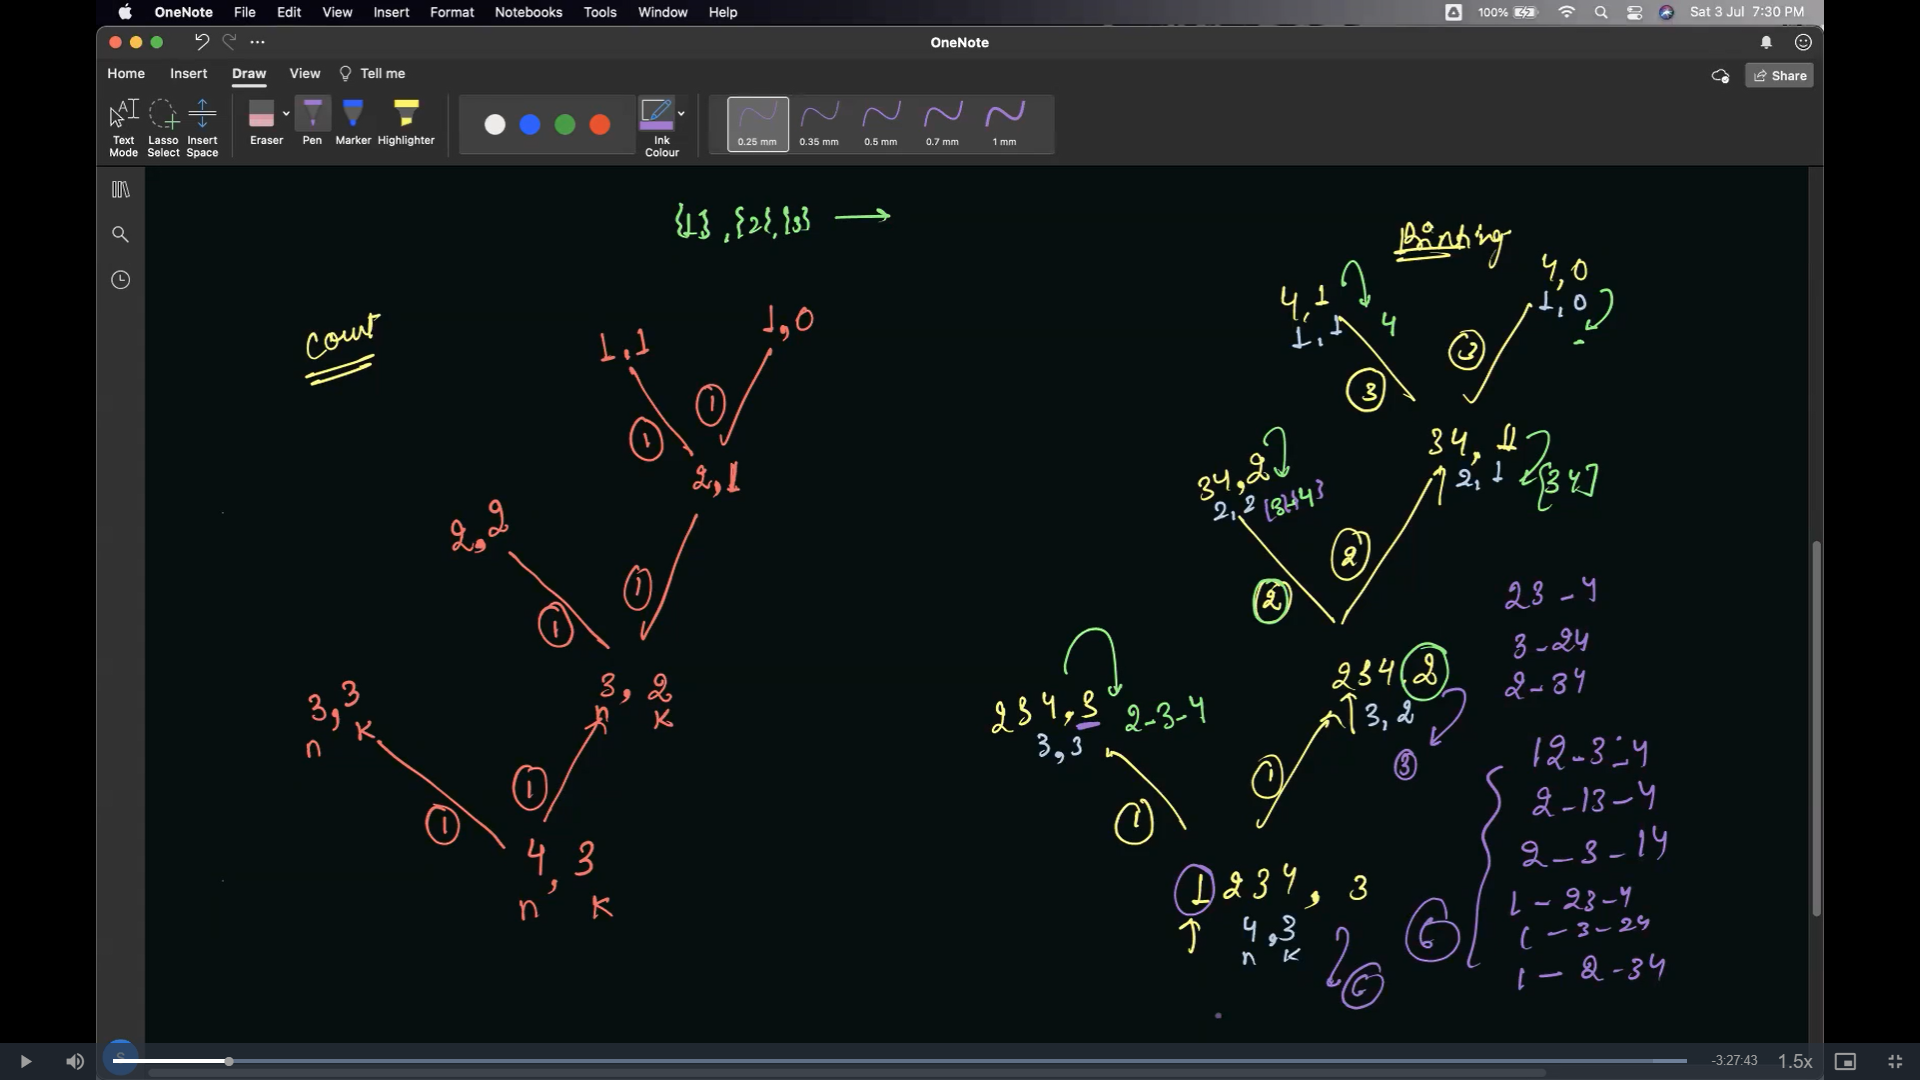 OneNote File Edit View Insert Format Notebooks Tools Window Help 100% Sat 3 Jul 7:30 PM
OneNote
Home Insert Draw View Tell me Share
Text Mode
Lasso Select
Insert Space
Eraser
Pen
Marker
Highlighter
Ink Colour
0.25 mm
0.35 mm
0.5 mm
0.7 mm
1 mm
{1}, {2}, {3} →
Count
1,1
1,0
1
1
2,1
2,2
1
1
3,3
n k
3, 2
n k
1
1
4, 3
n k
Printing
4,1
1,1
4
4,0
1,0
-
3
3
34,2
2,2
34, 1
2, 1
[34]
2
2
234,3
3,3
2-3-4
234 2
3, 2
3
1
1
1234, 3
4,3
n k
6
6
23-4
3-24
2-34
12-3-4
2-13-4
2-3-14
1-23-4
1-3-24
1-2-34
S
-3:27:43 1.5x